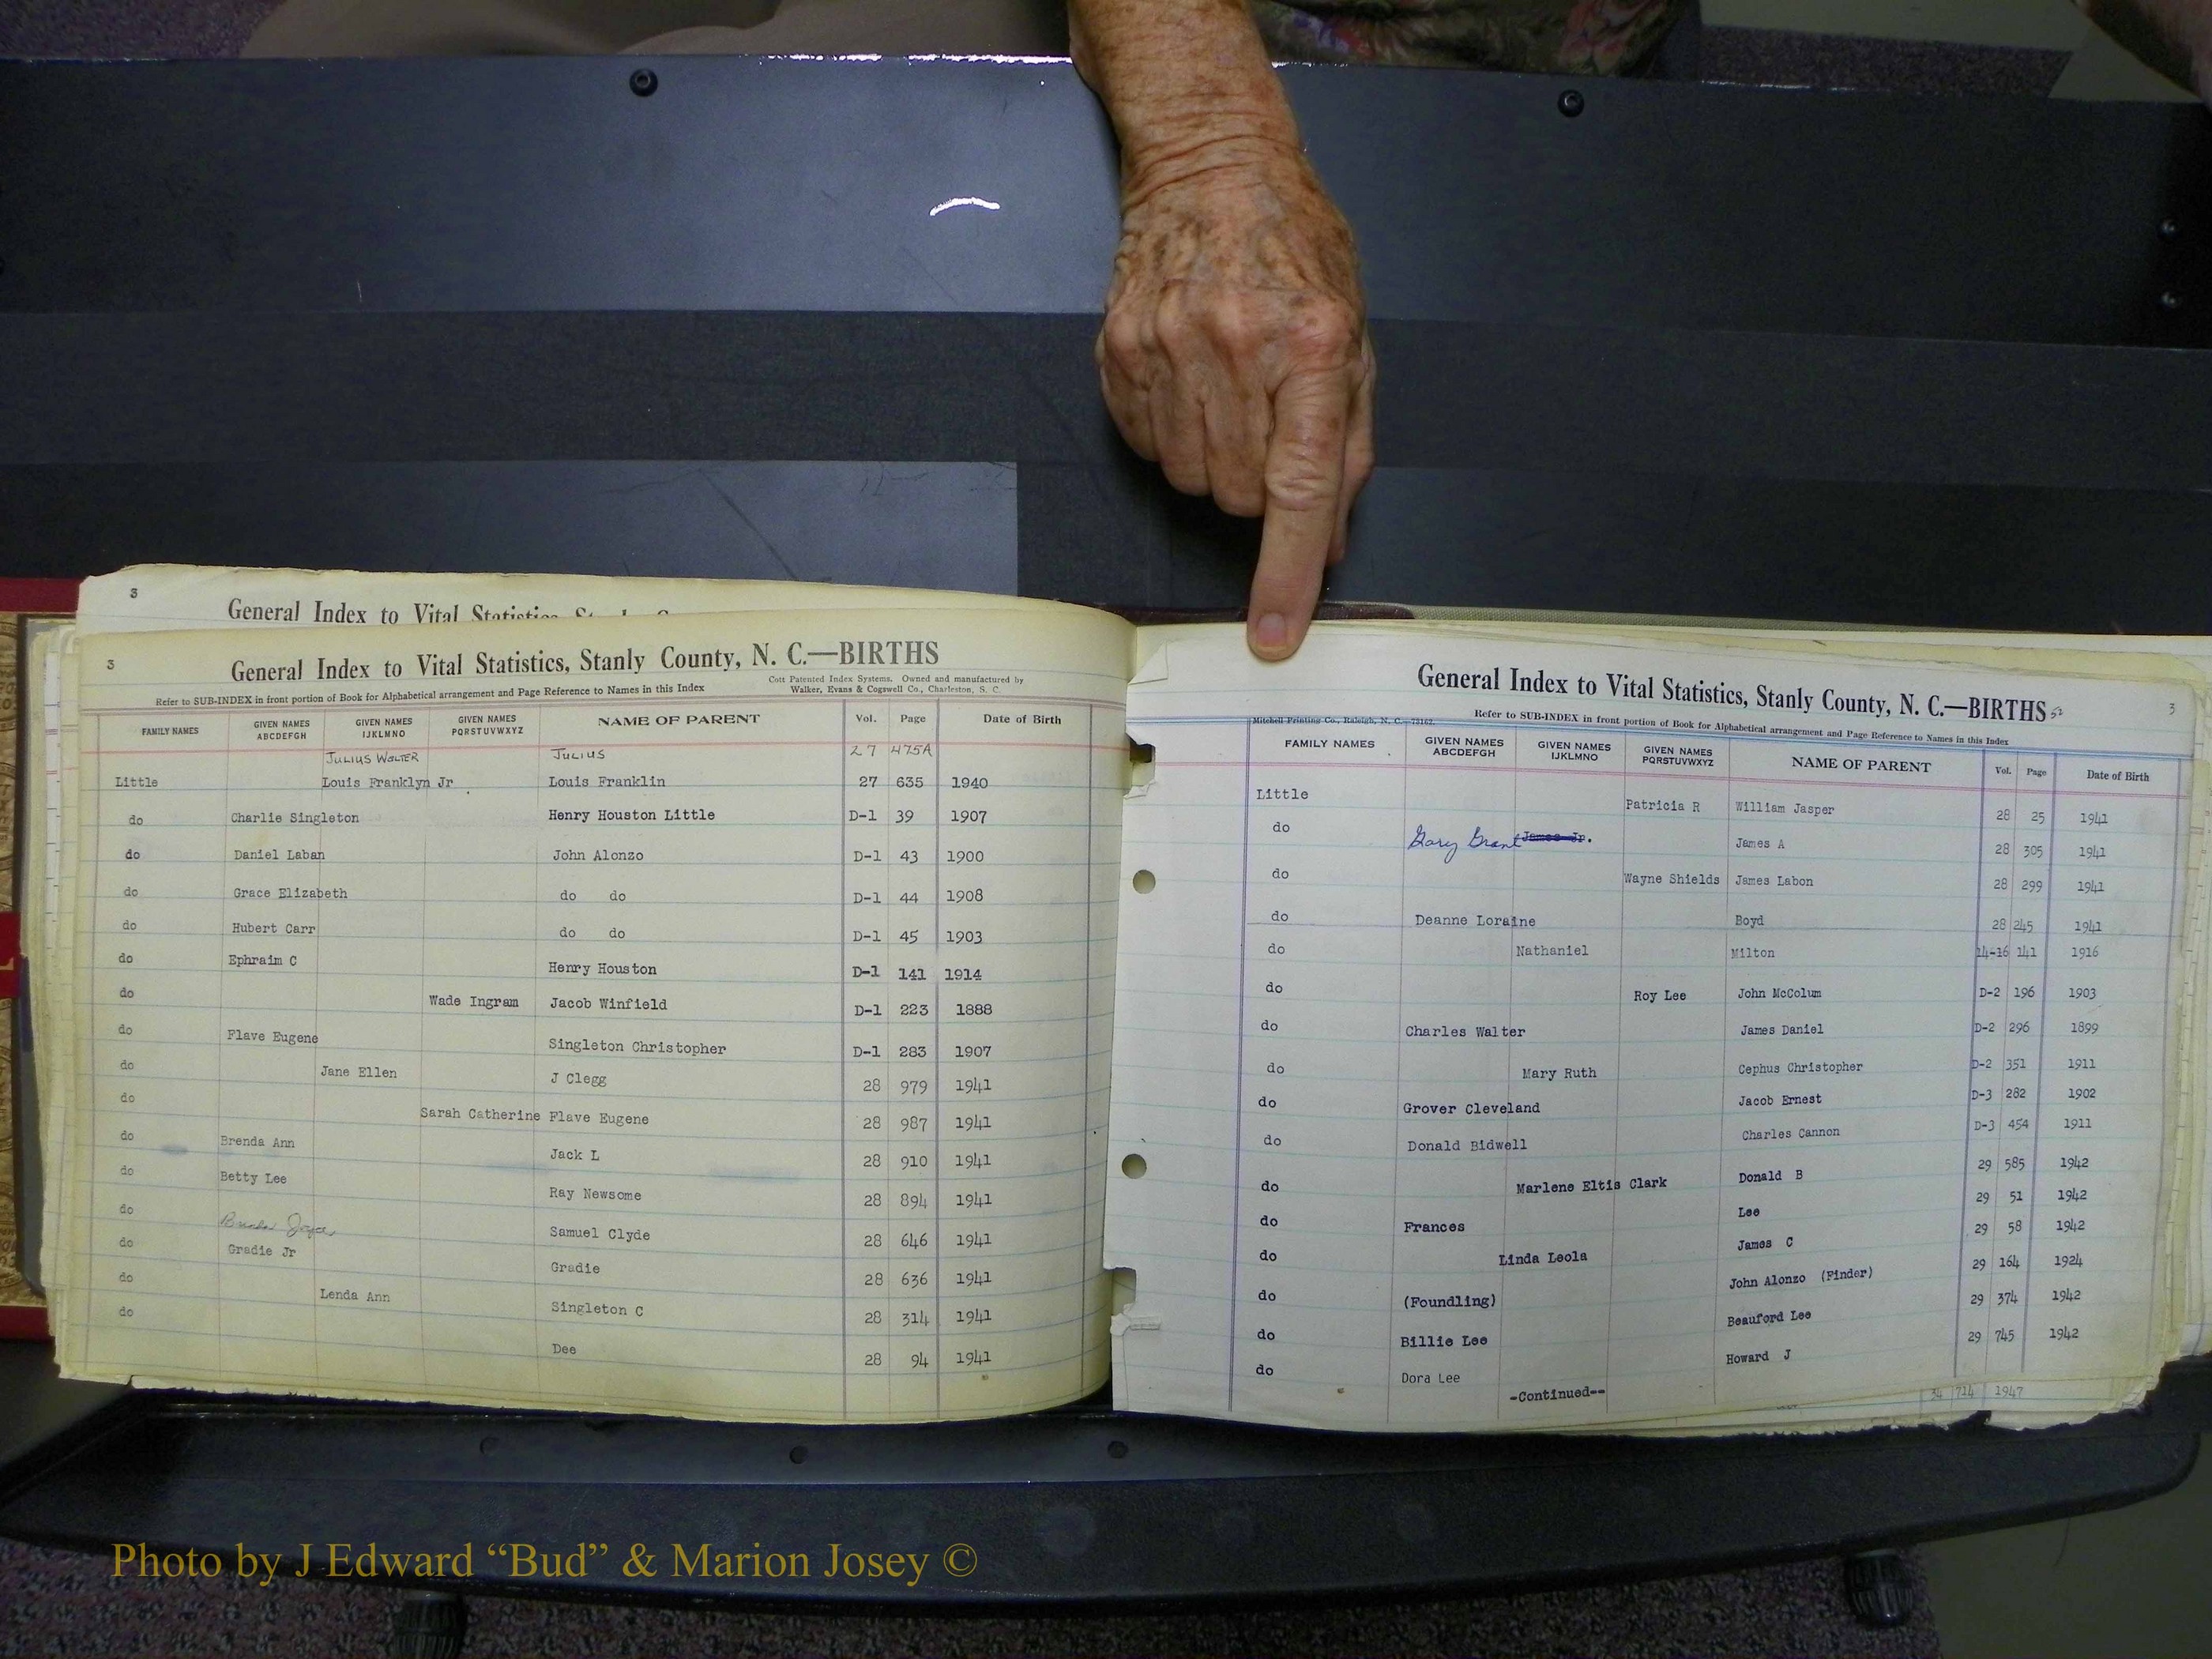 3
General Index to Vital Statistics, St
3
General Index to Vital Statistics, Stanly County, N. C.—BIRTHS
Refer to SUB-INDEX in front portion of Book for Alphabetical arrangement and Page Reference to Names in this Index
Cott Patented Index Systems. Owned and manufactured by
Walker, Evans & Cogswell Co., Charleston, S. C.
FAMILY NAMES GIVEN NAMES ABCDEFGH GIVEN NAMES IJKLMNO GIVEN NAMES PQRSTUVWXYZ NAME OF PARENT Vol. Page Date of Birth
JULIUS WALTER JULIUS 27 475A
Little Louis Franklyn Jr Louis Franklin 27 635 1940
do Charlie Singleton Henry Houston Little D-1 39 1907
do Daniel Laban John Alonzo D-1 43 1900
do Grace Elizabeth do do D-1 44 1908
do Hubert Carr do do D-1 45 1903
do Ephraim C Henry Houston D-1 141 1914
do Wade Ingram Jacob Winfield D-1 223 1888
do Flave Eugene Singleton Christopher D-1 283 1907
do Jane Ellen J Clegg 28 979 1941
do Sarah Catherine Flave Eugene 28 987 1941
do Brenda Ann Jack L 28 910 1941
do Betty Lee Ray Newsome 28 894 1941
do Brenda Joyce Samuel Clyde 28 646 1941
do Gradie Jr Gradie 28 636 1941
do Lenda Ann Singleton C 28 314 1941
do Dee 28 94 1941
General Index to Vital Statistics, Stanly County, N. C.—BIRTHS 52
3
Mitchell Printing Co., Raleigh, N. C.—73162
Refer to SUB-INDEX in front portion of Book for Alphabetical arrangement and Page Reference to Names in this Index
FAMILY NAMES GIVEN NAMES ABCDEFGH GIVEN NAMES IJKLMNO GIVEN NAMES PQRSTUVWXYZ NAME OF PARENT Vol. Page Date of Birth
Little Patricia R William Jasper 28 25 1941
do Gary Grant James Jr. James A 28 305 1941
do Wayne Shields James Labon 28 299 1941
do Deanne Loraine Boyd 28 245 1941
do Nathaniel Milton 14-16 141 1916
do Roy Lee John McColum D-2 196 1903
do Charles Walter James Daniel D-2 296 1899
do Mary Ruth Cephus Christopher D-2 351 1911
do Grover Cleveland Jacob Ernest D-3 282 1902
do Donald Bidwell Charles Cannon D-3 454 1911
do Marlene Eltis Clark Donald B 29 585 1942
do Frances Lee 29 51 1942
do Linda Leola James C 29 58 1942
do (Foundling) John Alonzo (Finder) 29 164 1924
do Billie Lee Beauford Lee 29 374 1942
do Dora Lee Howard J 29 745 1942
-Continued--
34 714 1947
Photo by J Edward “Bud” & Marion Josey ©